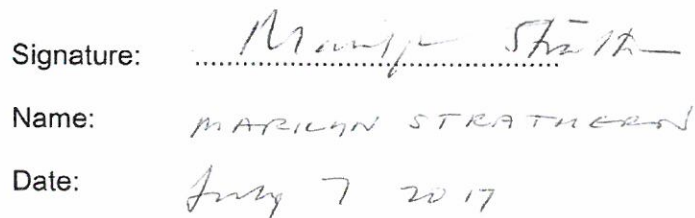 Signature: Marilyn Strathern
Name: MARILYN STRATHERN
Date: July 7 2017